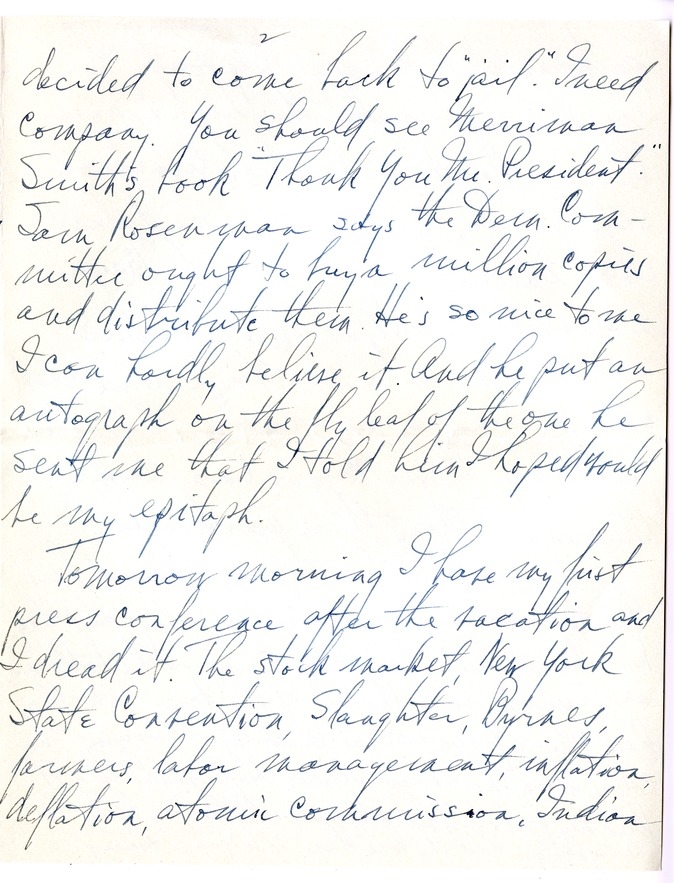 2
decided to come back to "jail." I need
company. You should see Merriman
Smith's book "Thank You Mr. President."
Sam Rosenman says the Dem. Com-
mittee ought to buy a million copies
and distribute them. He's so nice to me
I can hardly believe it. And he put an
autograph on the fly leaf of the one he
sent me that I told him I hoped would
be my epitaph.
Tomorrow morning I have my first
press conference after the vacation and
I dread it. The stock market, New York
State Convention, Slaughter, Byrnes,
farmers, labor management, inflation,
deflation, atomic commission, Indian